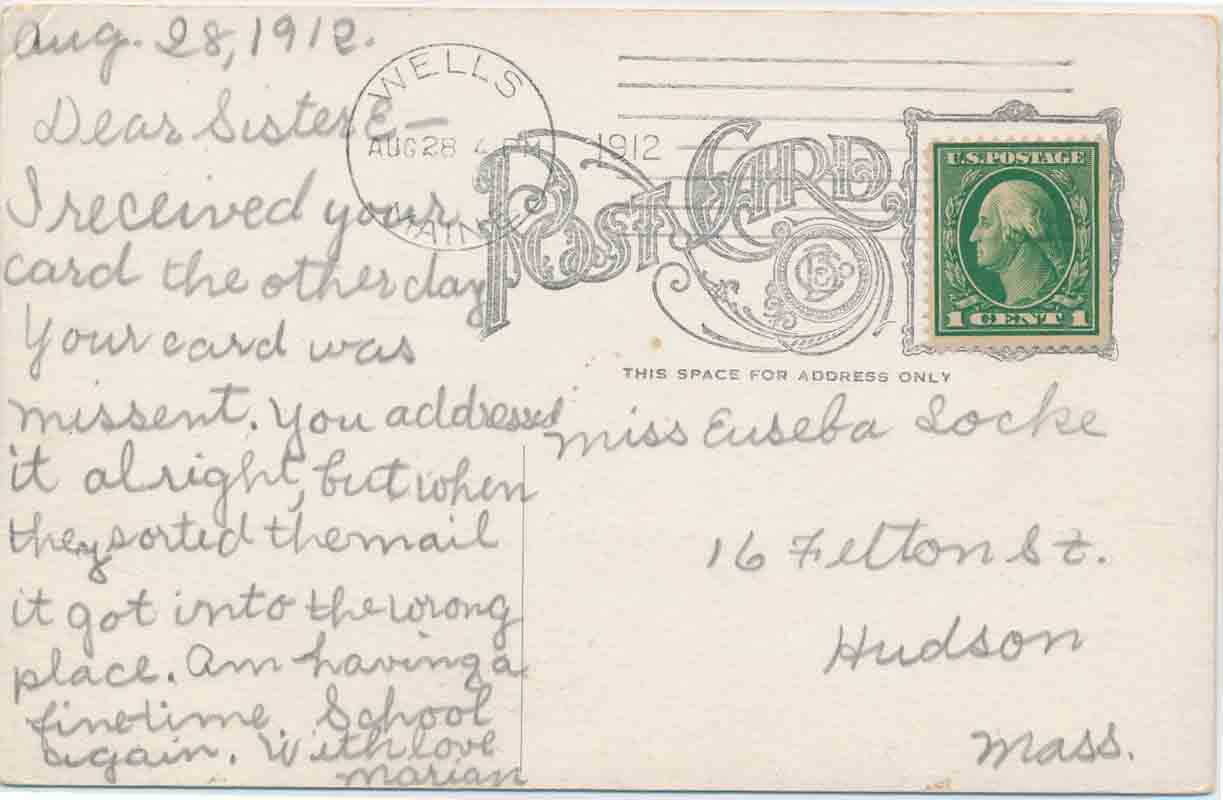 Aug. 28, 1912.
Dear Sister E—
I received your
card the other day
Your card was
missent. You addressed
it alright, but when
they sorted the mail
it got into the wrong
place. Am having a
fine time. School
again. With love
Marian
WELLS
AUG 28 4 PM 1912
MAINE
POST CARD
U.S. POSTAGE
1 CENT 1
THIS SPACE FOR ADDRESS ONLY
Miss Euseba Locke
16 Felton St.
Hudson
Mass.